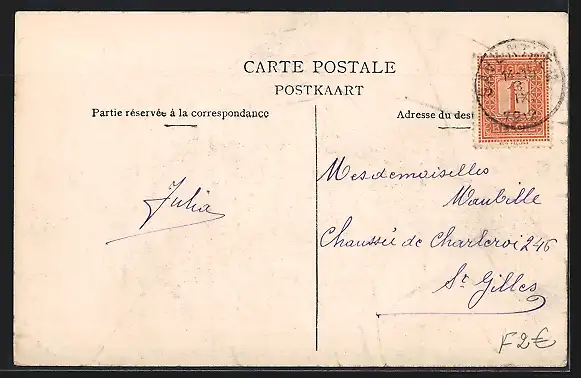 CARTE POSTALE
POSTKAART
Partie réservée à la correspondance
Adresse du dest
1
1912
Julia
Mesdemoiselles
Waubille
Chaussée de Charleroi 246
St Gilles
F2€